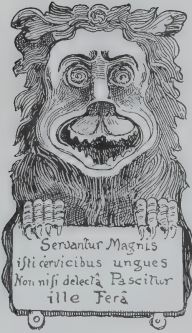 Servantur Magnis
isti cervicibus ungues
Non nisi delectâ Pascitur
ille Ferâ